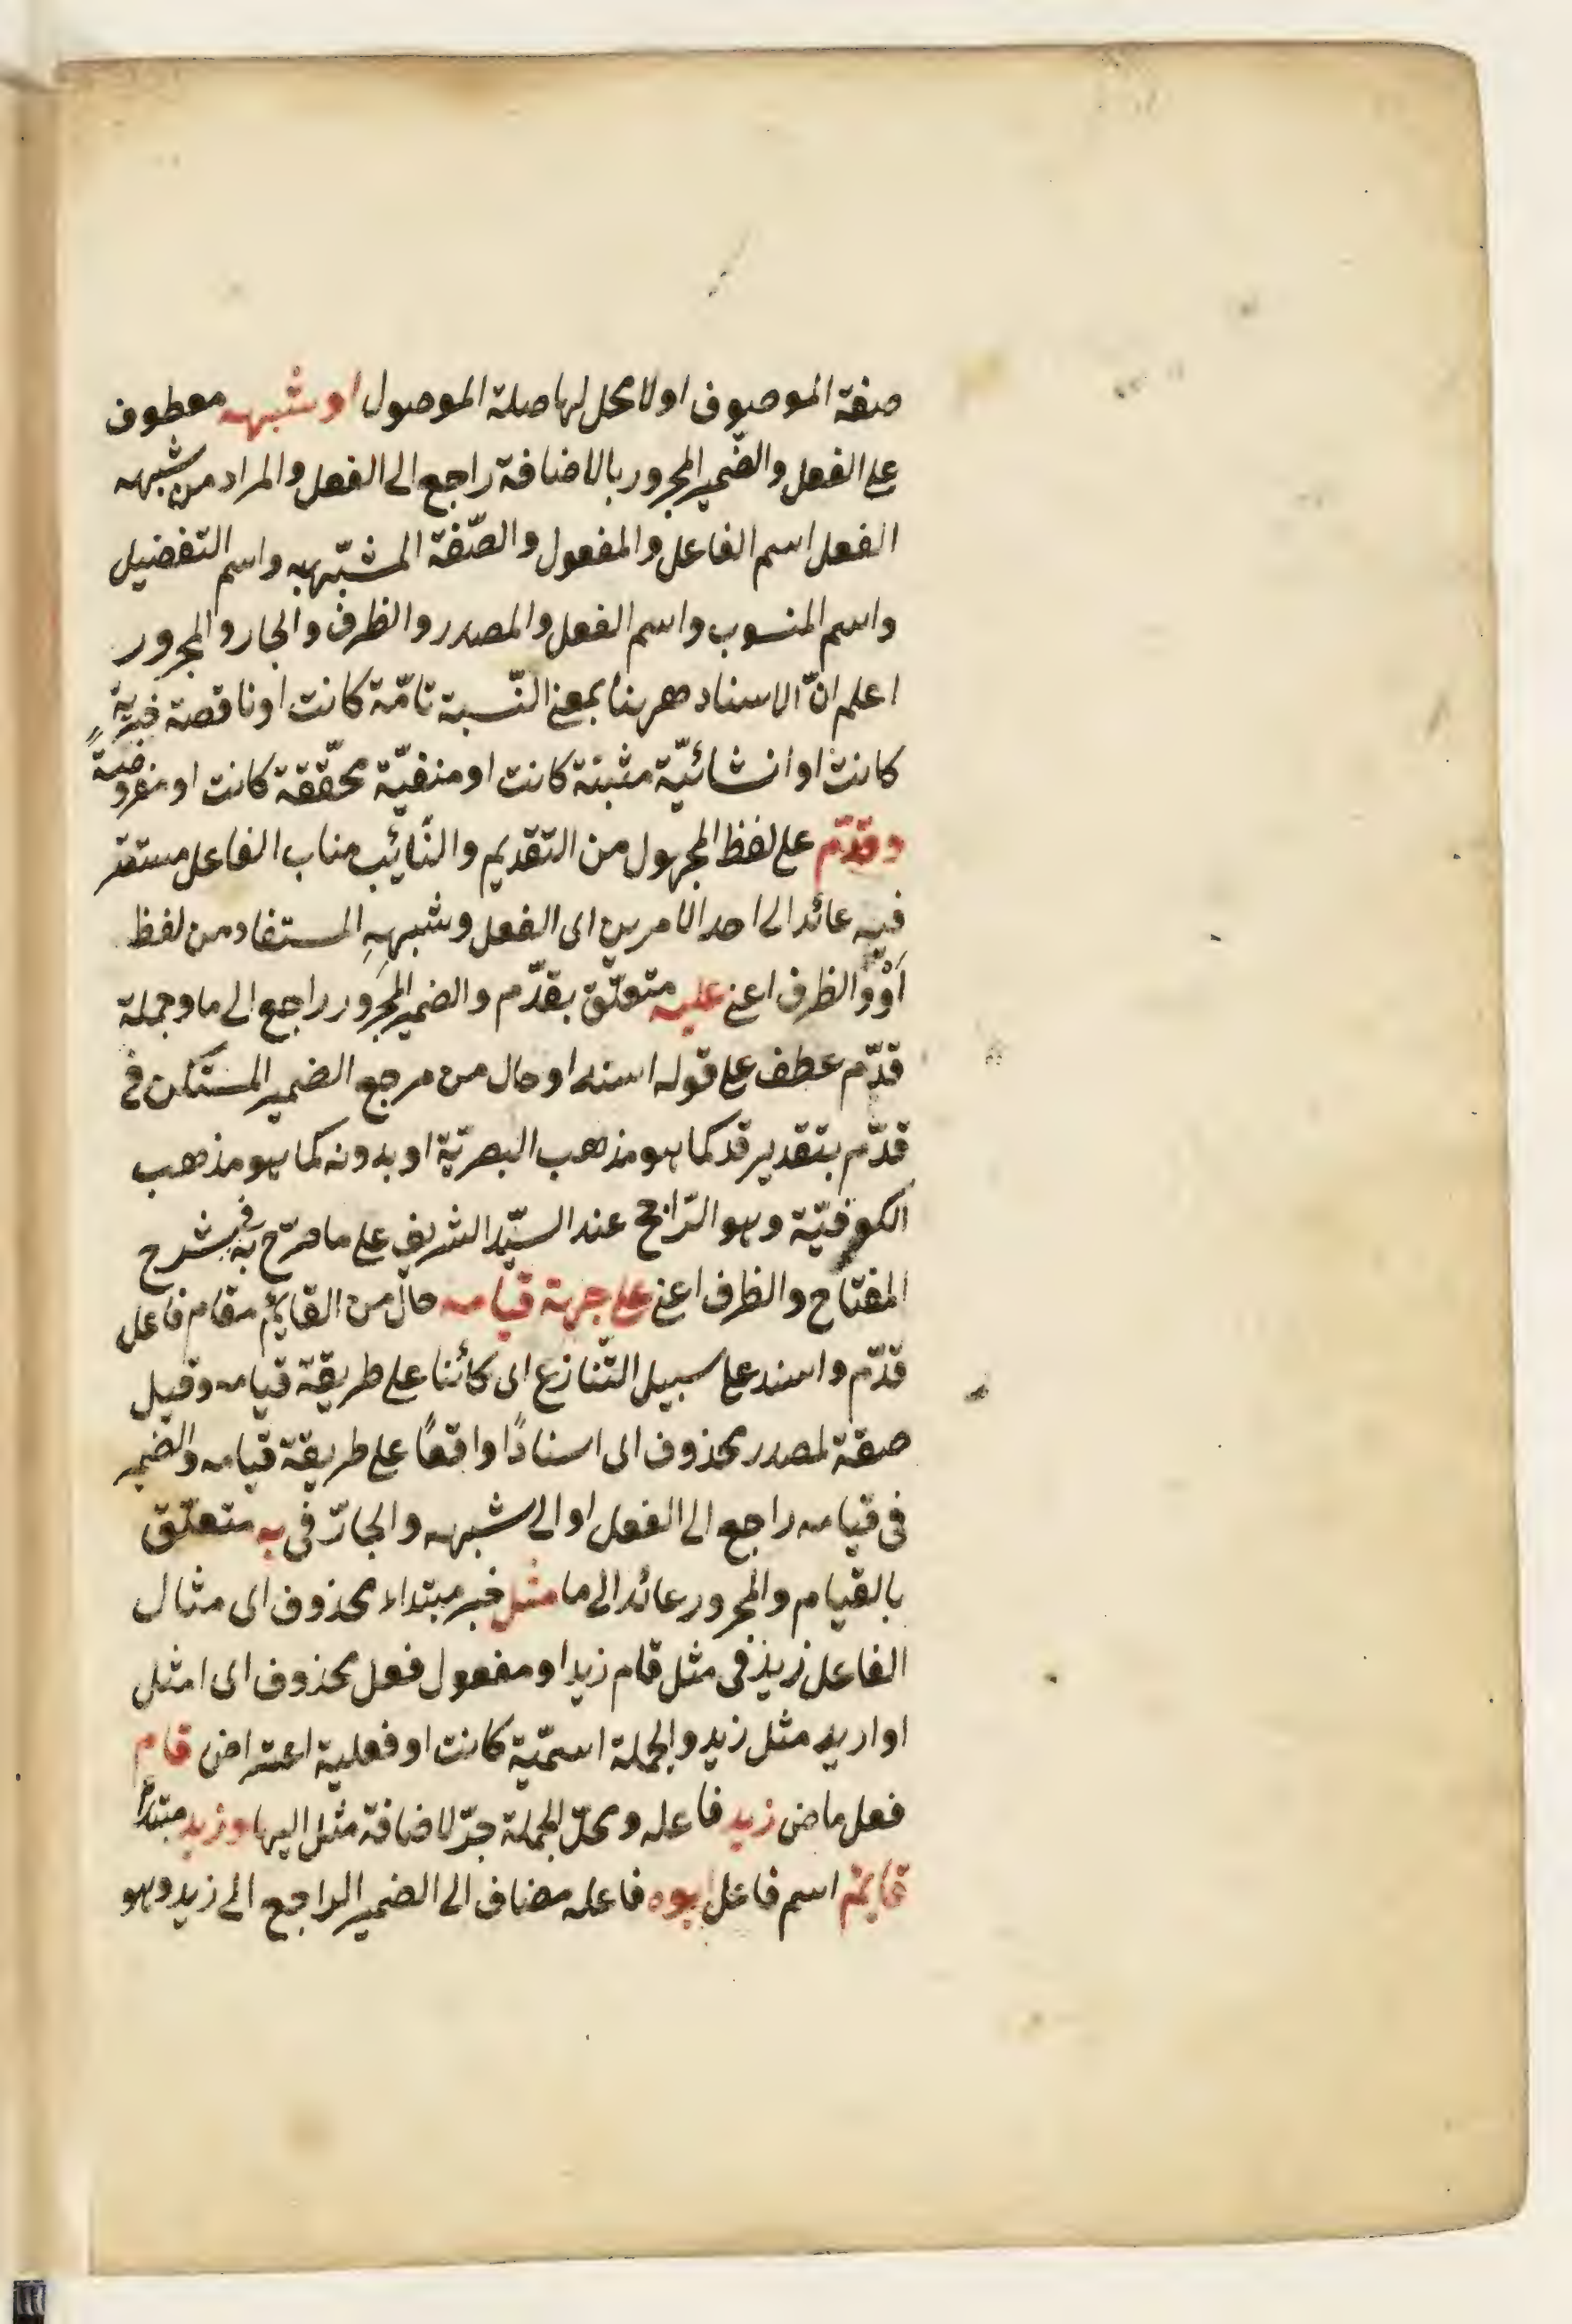 صفة الموصوف او لا محل لها صلة الموصول او شبهه معطوف
على الفعل والضّمير المجرور بالاضافة راجع الى الفعل والمراد من شبهه
الفعل اسم الفاعل والمفعول والصّفة المشبّهه واسم التفضيل
واسم المنسوب واسم الفعل والمصدر والظرف والجار والمجرور
اعلم انّ الاسناد ههنا بمعنى النّسبة تامّة كانت او ناقصة خبريّة
كانت او انشائيّة مثبتة كانت او منفيّة محقّقة كانت او مفروضة
وقدّم على لفظ المجهول من التقديم والنّائب مناب الفاعل مستتر
فيه عائد الى احد الامرين اى الفعل وشبههِ المستفاد من لفظ
اَوْ والظرف اعنى عليه متعلّق بقدّم والضمير المجرور راجع الى ما وجملة
قدّم عطف على قوله اسند او حال من مرجع الضمير المستكن فى
قدّم بتقدير قد كما هو مذهب البصريّة او بدونه كما هو مذهب
الكوفيّة وهو الرّاجح عند السيّد الشريف على ما صرّح به فى شرح
المفتاح والظرف اعنى على جهة قيامه حال من القائم مقام فاعل
قدّم واسند على سبيل التّنازع اى كائنا على طريقة قيامه وقيل
صفة لمصدر محذوف اى اسنادًا واقعًا على طريقة قيامه والضّمير
فى قيامه راجع الى الفعل او الى شبهه والجارّ فى به متعلّق
بالقيام والمجرور عائد الى ما مثل خبر مبتداء محذوف اى مثال
الفاعل زيد فى مثل قام زيد او مفعول فعل محذوف اى امثل
او اريد مثل زيد والجملة اسميّة كانت او فعلية اعتراض قام
فعل ماض زيد فاعله ومحلّ الجملة جرّ لاضافة مثل اليها وزيد مبتدأ
قائم اسم فاعل ابوه فاعله مضاف الى الضمير الراجع الى زيد وهو